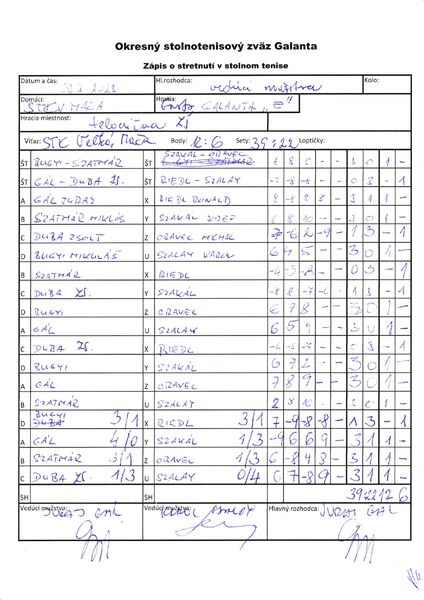 Okresný stolnotenisový zväz Galanta
Zápis o stretnutí v stolnom tenise
Dátum a čas: Hl.rozhodca: vedúci mužstva Kolo:
Domáci: STK V. MAČA Hostia: GALANTA „E"
Hracia miestnosť: telocvičňa ZŠ
Víťaz: STK Veľká Mača Body: 12:6 Sety: 39:22 Loptičky:
ŠT BUGYI-SZATMÁR ŠT SZAKAL-ORAVEC 3 0 1 -
ŠT GÁL-DUBA ZS. ŠT RIEDL-SZALAY 0 3 - 1
A GÁL JURAJ X RIEDL RONALD 3 0 1 -
B SZATMÁR MIKLÓS Y SZAKAL JOZEF 3 0 1 -
C DUBA ZSOLT Z ORAVEC MICHAL -7 -6 2 -9 - 1 3 - 1
D BUGYI MIKULÁŠ U SZALAY KAROL 6 4 5 - - 3 0 1 -
B SZATMÁR X RIEDL -4 -3 -2 - - 0 3 - 1
C DUBA ZS. Y SZAKÁL 1 3 - 1
D BUGYI Z ORAVEC 6 7 8 - - 3 0 1 -
A GÁL U SZALAY 6 5 9 - - 3 0 1 -
C DUBA ZS. X RIEDL 0 3 - 1
D BUGYI Y SZAKAL 6 7 2 - - 3 0 1 -
A GÁL Z ORAVEC 7 8 9 - - 3 0 1 -
B SZATMÁR U SZALAY 2 8 10 - - 3 0 1 -
D BUGYI 3/1 X RIEDL 3/1 7 -9 -8 -8 - 1 3 - 1
A GÁL 4/0 Y SZAKÁL 1/3 -9 6 6 9 - 3 1 1 -
B SZATMÁR 3/1 Z ORAVEC 1/3 6 -8 4 8 - 3 1 1 -
C DUBA ZS. 1/3 U SZALAY 0/4 6 -7 8 9 - 3 1 1 -
SH SH 39 22 12 6
Vedúci mužstva: JURAJ GÁL Vedúci mužstva: Hlavný rozhodca: JURAJ GÁL